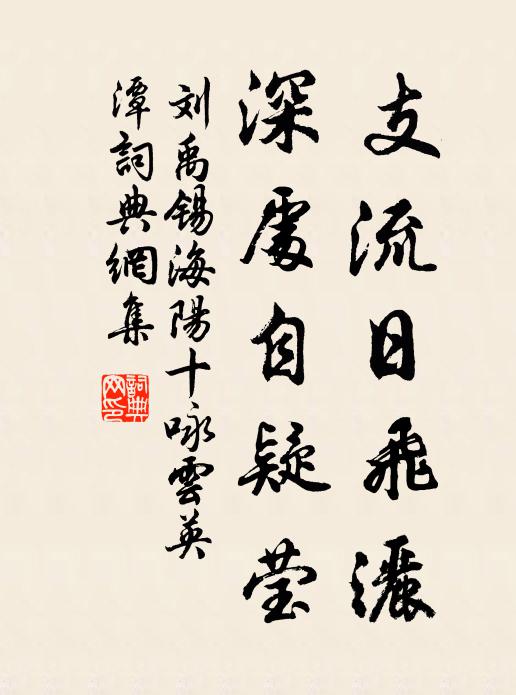 支流日飛灑
深處自疑莹
刘禹锡海陽十咏雲英
潭詞典網集
詞典
网印